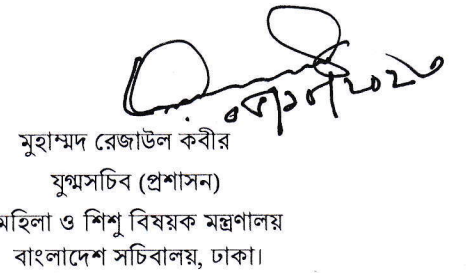 মুহাম্মদ রেজাউল কবীর
যুগ্মসচিব (প্রশাসন)
মহিলা ও শিশু বিষয়ক মন্ত্রণালয়
বাংলাদেশ সচিবালয়, ঢাকা।